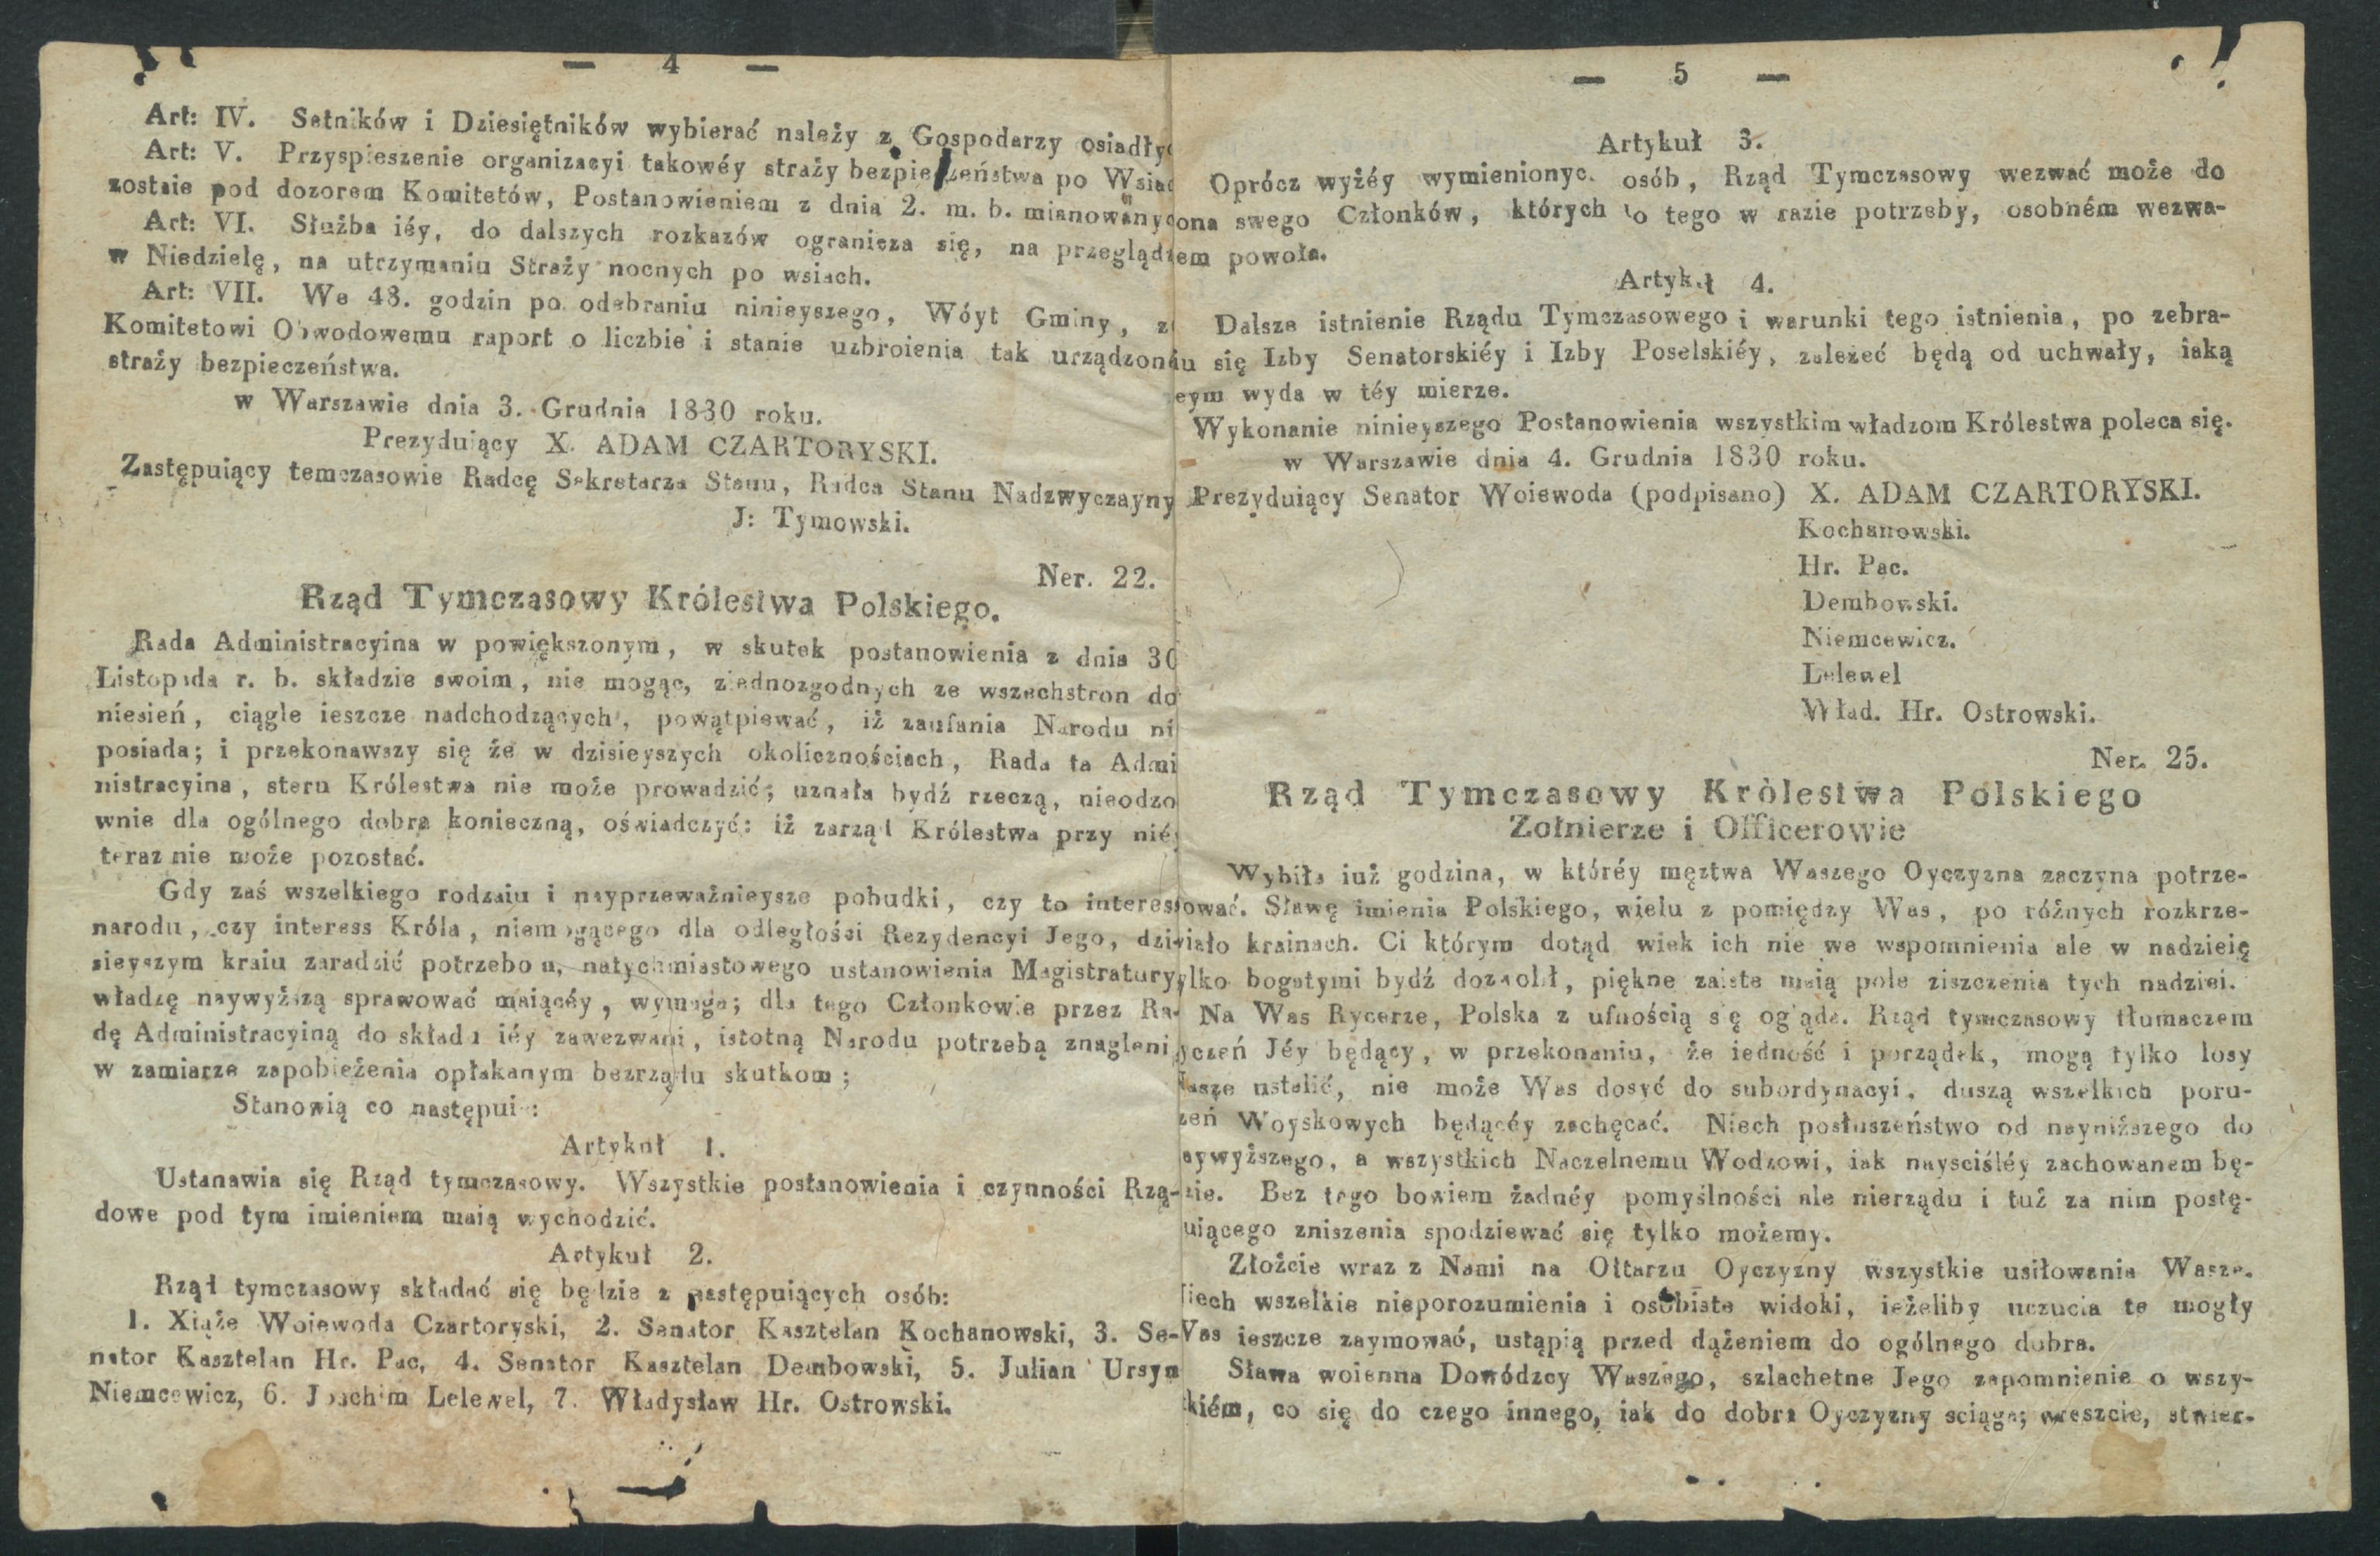 — 4 —
Art: IV. Setników i Dziesiętników wybierać należy z Gospodarzy osiadły
Art: V. Przyspieszenie organizacyi takowéy straży bezpieczeństwa po Wsiac
zostaie pod dozorem Komitetów, Postanowieniem z dnia 2. m. b. mianowany
Art: VI. Służba iéy, do dalszych rozkazów ogranicza się, na przeglądz
w Niedzielę, na utrzymaniu Straży nocnych po wsiach.
Art: VII. We 48. godzin po odebraniu ninieyszego, Wóyt Gminy, z
Komitetowi Obwodowemu raport o liczbie i stanie uzbroienia tak urządzoné
straży bezpieczeństwa.
w Warszawie dnia 3. Grudnia 1830 roku.
Prezyduiący X. ADAM CZARTORYSKI.
Zastępuiący temczasowie Radcę Sekretarza Stanu, Radca Stanu Nadzwyczayny
J: Tymowski.
Ner. 22.
Rząd Tymczasowy Królestwa Polskiego.
Rada Administracyina w powiększonym, w skutek postanowienia z dnia 30
Listopada r. b. składzie swoim, nie mogąc, ziednozgodnych ze wszechstron do
niesień, ciągle ieszcze nadchodzących, powątpiewać, iż zaufania Narodu ni
posiada; i przekonawszy się że w dzisieyszych okolicznościach, Rada ta Admi
nistracyina, steru Królestwa nie może prowadzić; uznała bydź rzeczą, nieodzo
wnie dla ogólnego dobra konieczną, oświadczyć: iż zarząd Królestwa przy nié
teraz nie może pozostać.
Gdy zaś wszelkiego rodzaiu i nayprzeważnieysze pobudki, czy to interess
narodu, czy interess Króla, niemogącego dla odległości Rezydencyi Jego, dzi
sieyszym kraiu zaradzić potrzebom, natychmiastowego ustanowienia Magistratury
władzę naywyższą sprawować maiącéy, wymaga; dla tego Członkowie przez Ra-
dę Administracyiną do składu iéy zawezwani, istotną Narodu potrzebą znagleni
w zamiarze zapobieżenia opłakanym bezrządu skutkom;
Stanowią co następuie:
Artykuł 1.
Ustanawia się Rząd tymczasowy. Wszystkie postanowienia i czynności Rzą-
dowe pod tym imieniem maią wychodzić.
Artykuł 2.
Rząd tymczasowy składać się będzie z następuiących osób:
1. Xiąże Woiewoda Czartoryski, 2. Senator Kasztelan Kochanowski, 3. Se-
nator Kasztelan Hr. Pac, 4. Senator Kasztelan Dembowski, 5. Julian Ursyn
Niemcewicz, 6. Joachim Lelewel, 7. Władysław Hr. Ostrowski.
— 5 —
Artykuł 3.
Oprócz wyżéy wymienionyc. osób, Rząd Tymczasowy wezwać może do
ona swego Członków, których do tego w razie potrzeby, osobném wezwa-
em powoła.
Artykuł 4.
Dalsze istnienie Rządu Tymczasowego i warunki tego istnienia, po zebra-
iu się Izby Senatorskiéy i Izby Poselskiéy, zależeć będą od uchwały, iaką
eym wyda w téy mierze.
Wykonanie ninieyszego Postanowienia wszystkim władzom Królestwa poleca się.
w Warszawie dnia 4. Grudnia 1830 roku.
Prezyduiący Senator Woiewoda (podpisano) X. ADAM CZARTORYSKI.
Kochanowski.
Hr. Pac.
Dembowski.
Niemcewicz.
Lelewel
Wład. Hr. Ostrowski.
Ner. 25.
Rząd Tymczasowy Królestwa Polskiego
Zołnierze i Officerowie
Wybiła iuż godzina, w któréy męztwa Waszego Oyczyzna zaczyna potrze-
ować. Sławę imienia Polskiego, wielu z pomiędzy Was, po różnych rozkrze-
iało krainach. Ci którym dotąd wiek ich nie we wspomnienia ale w nadzieię
ylko bogatymi bydź dozwolił, piękne zaiste maią pole ziszczenia tych nadziei.
Na Was Rycerze, Polska z ufnością się ogląda. Rząd tymczasowy tłumaczem
yczeń Jéy będący, w przekonaniu, że iedność i porządek, mogą tylko losy
Nasze ustalić, nie może Was dosyć do subordynacyi, duszą wszelkich poru-
zeń Woyskowych będącéy zachęcać. Niech posłuszeństwo od nayniższego do
aywyższego, a wszystkich Naczelnemu Wodzowi, iak naysciśléy zachowanem bę-
zie. Bez tego bowiem żadnéy pomyślności ale nierządu i tuż za nim postę-
uiącego zniszenia spodziewać się tylko możemy.
Złożcie wraz z Nami na Ołtarzu Oyczyzny wszystkie usiłowania Wasze.
iech wszelkie nieporozumienia i osobiste widoki, ieżeliby uczucia te mogły
Was ieszcze zaymować, ustąpią przed dążeniem do ogólnego dobra.
Sława woienna Dowódzcy Waszego, szlachetne Jego zapomnienie o wszy-
kiém, co się do czego innego, iak do dobra Oyczyzny sciąga; wreszcie, stwier-